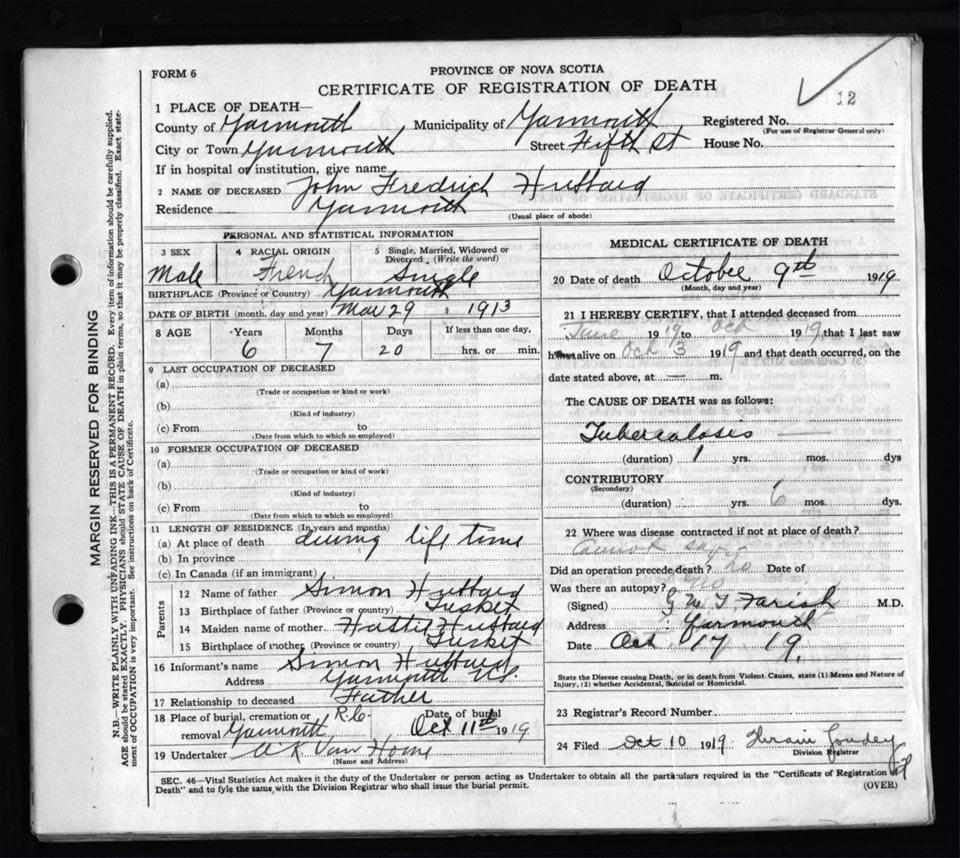 FORM 6
PROVINCE OF NOVA SCOTIA
CERTIFICATE OF REGISTRATION OF DEATH
12
1 PLACE OF DEATH—
County of Yarmouth Municipality of Yarmouth Registered No.
(For use of Registrar General only)
City or Town Yarmouth Street Fifth St House No.
If in hospital or institution, give name
2 NAME OF DECEASED John Fredrich Hubbard
Residence Yarmouth
(Usual place of abode)
PERSONAL AND STATISTICAL INFORMATION
3 SEX 4 RACIAL ORIGIN 5 Single, Married, Widowed or Divorced. (Write the word)
Male French Single
BIRTHPLACE (Province or Country) Yarmouth
DATE OF BIRTH (month, day and year) Mar 29 1913
8 AGE Years Months Days If less than one day,
6 7 20 hrs. or min.
9 LAST OCCUPATION OF DECEASED
(a)
(Trade or occupation or kind or work)
(b)
(Kind of industry)
(c) From to
(Date from which to which so employed)
10 FORMER OCCUPATION OF DECEASED
(a)
(Trade or occupation or kind of work)
(b)
(Kind of industry)
(c) From to
(Date from which to which so employed)
11 LENGTH OF RESIDENCE (In years and months)
(a) At place of death during life time
(b) In province
(c) In Canada (if an immigrant)
Parents
12 Name of father Simon Hubbard
13 Birthplace of father (Province or country) Tusket
14 Maiden name of mother Hattie Hubbard
15 Birthplace of mother (Province or country) Tusket
16 Informant's name Simon Hubbard
Address Yarmouth NS.
17 Relationship to deceased Father
18 Place of burial, cremation or removal Yarmouth R.C. Date of burial Oct 11th 1919
19 Undertaker A K Van Horne
(Name and Address)
MEDICAL CERTIFICATE OF DEATH
20 Date of death October 9th 1919
(Month, day and year)
21 I HEREBY CERTIFY, that I attended deceased from
June 1919 to Oct 1919 that I last saw
h alive on Oct 3 1919 and that death occurred, on the
date stated above, at — m.
The CAUSE OF DEATH was as follows:
Tuberculosis
(duration) 1 yrs. mos. dys
CONTRIBUTORY
(Secondary)
(duration) yrs. 6 mos. dys.
22 Where was disease contracted if not at place of death?
Cannot say
Did an operation precede death? No Date of
Was there an autopsy? No
(Signed) G W T Farish M.D.
Address Yarmouth
Date Oct 17 19.
State the Disease causing Death, or in death from Violent Causes, state (1) Means and Nature of
Injury, (2) whether Accidental, Suicidal or Homicidal.
23 Registrar's Record Number
24 Filed Oct 10 1919 Hiram Goudey
Division Registrar
SEC. 46—Vital Statistics Act makes it the duty of the Undertaker or person acting as Undertaker to obtain all the particulars required in the "Certificate of Registration of
Death" and to fyle the same with the Division Registrar who shall issue the burial permit. (OVER)
MARGIN RESERVED FOR BINDING
N.B.—WRITE PLAINLY WITH UNFADING INK—THIS IS A PERMANENT RECORD. Every item of information should be carefully supplied.
AGE should be stated EXACTLY. PHYSICIANS should STATE CAUSE OF DEATH in plain terms, so that it may be properly classified. Exact statement
of OCCUPATION is very important. See instructions on back of Certificate.